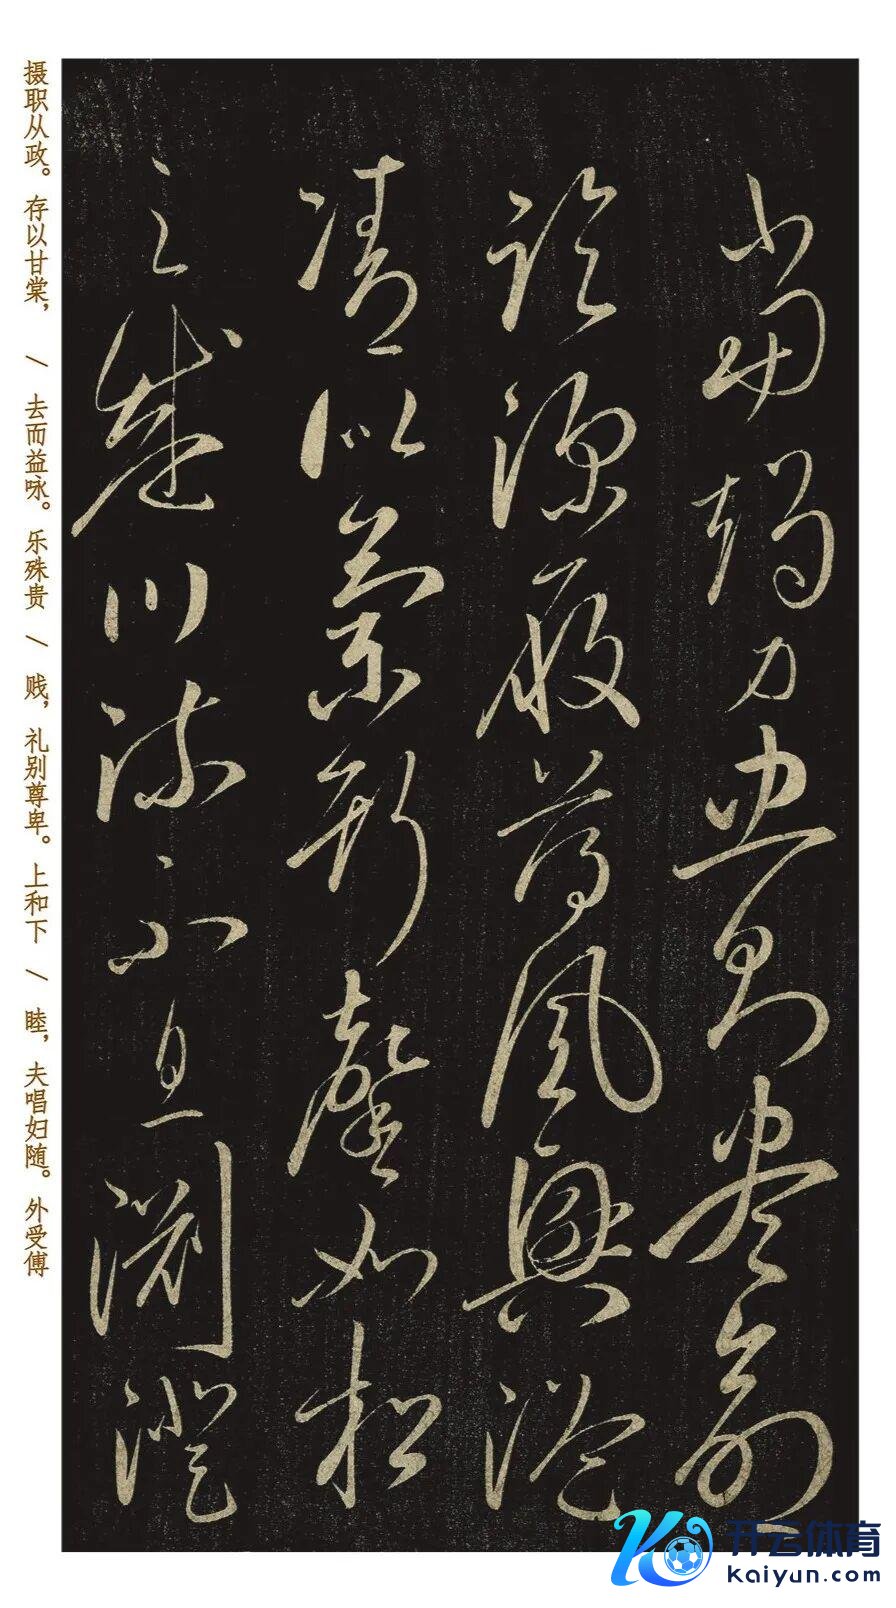 當竭力忠則盡命
臨深履薄夙興温
凊似蘭斯馨如松
之盛川流不息淵澄
摄职从政。存以甘棠， / 去而益咏。乐殊贵 / 贱，礼别尊卑。上和下 / 睦，夫唱妇随。外受傅
开云体育
kaiyun.com